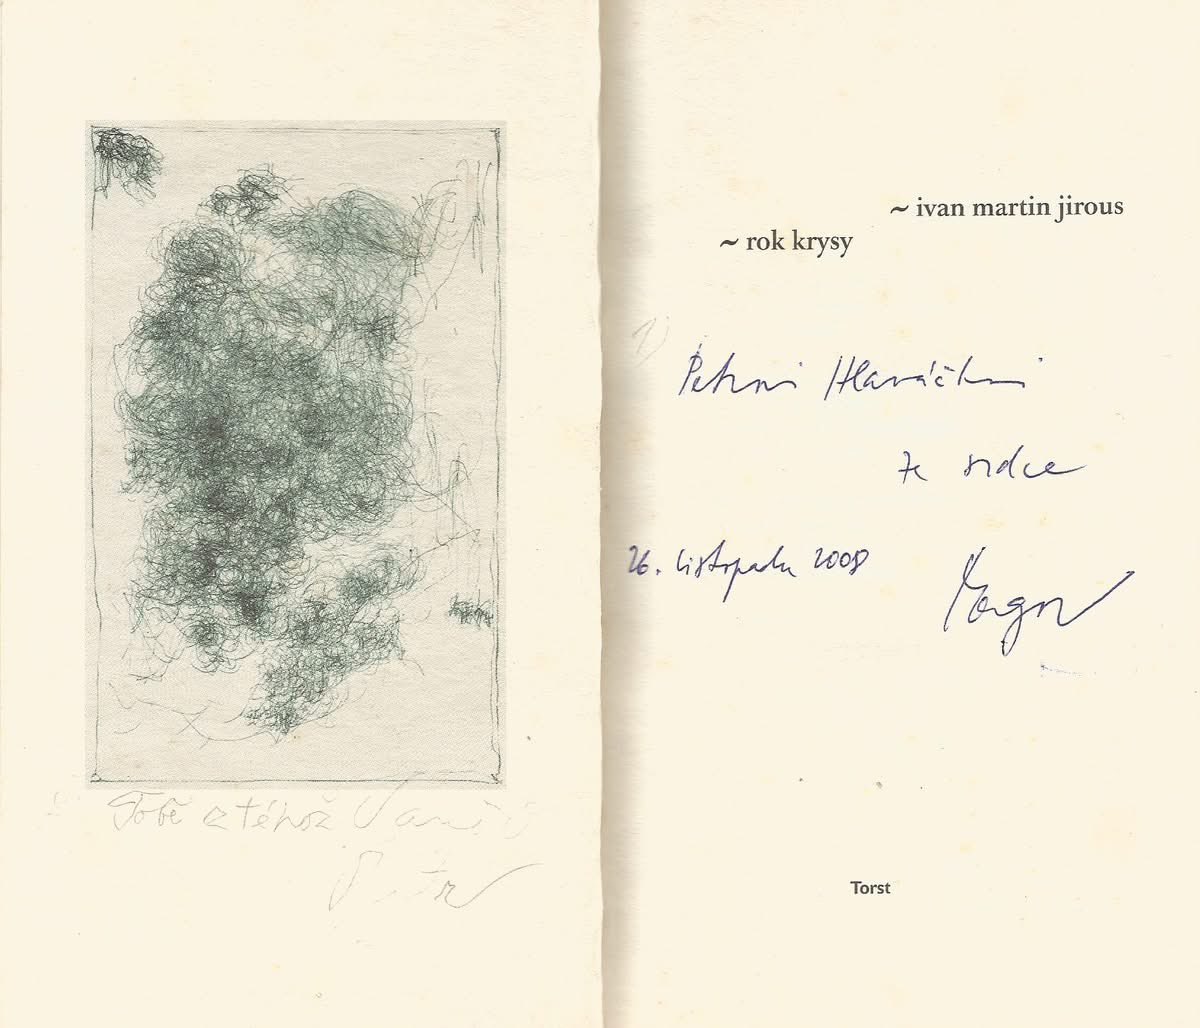 Tobě z téhož
~ ivan martin jirous
~ rok krysy
1)
Petrovi Hlaváčkovi
ze srdce
26. listopadu 2008
Magor
Torst